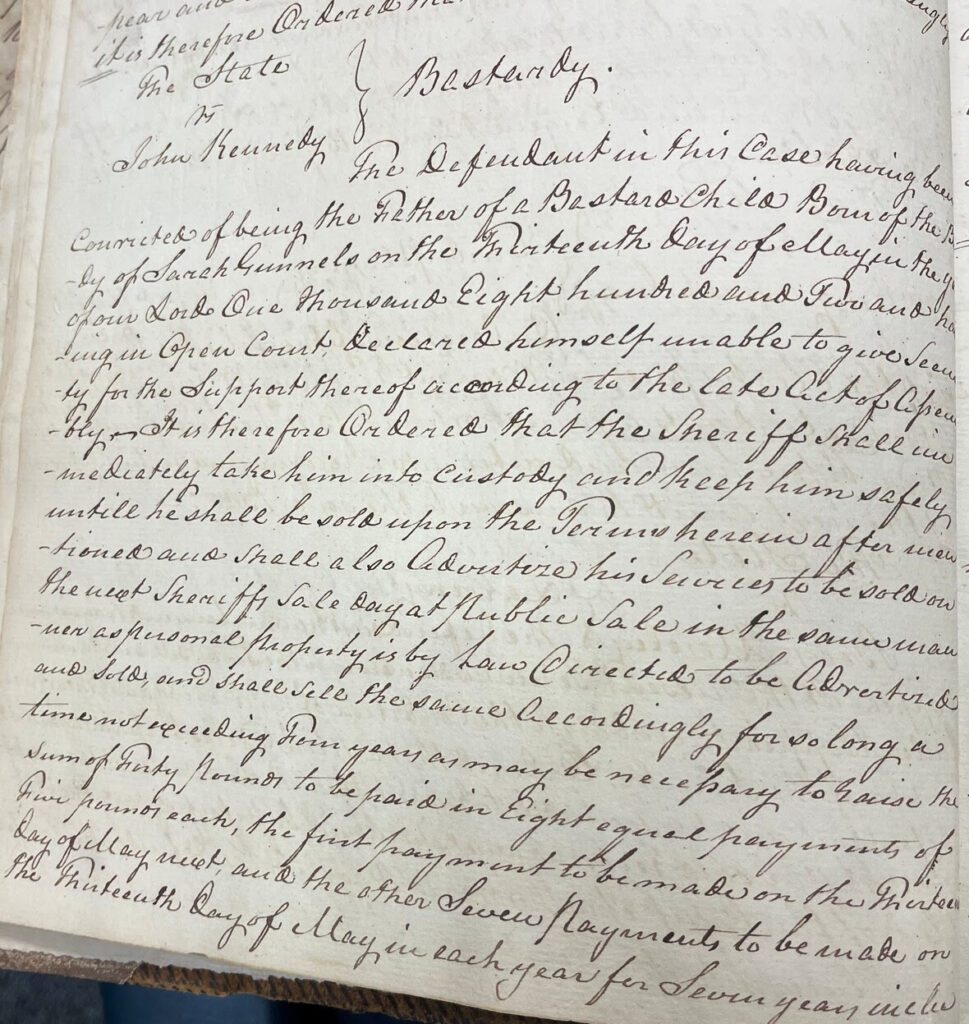 -pear and
it is therefore Ordered that
The State
vs
John Kennedy
Bastardy.
The Defendant in this Case having been
Convicted of being the Father of a Bastard Child Born of the B
-dy of Sarah Gunnels on the Thirteenth Day of May in the y
of our Lord One thousand Eight hundred and Two and ha
-ing in Open Court, Declared himself unable to give Secu
-ty for the Support thereof according to the late Act of Assem
-bly, It is therefore Ordered that the Sheriff Shall im
-mediately take him into Custody and Keep him safely
untill he shall be sold upon the Terms herein after men
-tioned and shall also Advertize his Services to be sold on
the next Sheriffs Sale day at Public Sale in the same man
-ner as personal property is by Law Directed to be Advertized
and Sold, and shall sell the same Accordingly for so long a
time not exceeding Four years as may be necessary to Raise the
Sum of Forty Pounds to be paid in Eight equal payments of
Five pounds each, the first payment to be made on the Thirteen
Day of May next, and the other Seven Payments to be made on
the Thirteenth Day of May in each year for Seven years inclu